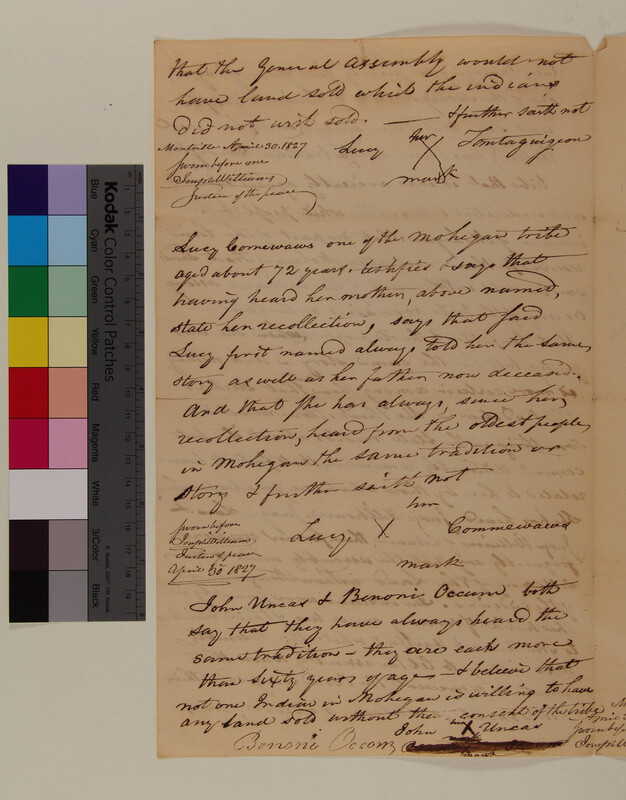 that the General Assembly would not
have land sold which the indians
did not wish sold. — & further saith not
Montville April 30, 1827
sworn before me
Joseph Williams
Justice of the peace
Lucy her Tantaquigeon
X
mark
Lucy Comewaws one of the Mohegan tribe
aged about 72 years, testifies & says that
having heard her mother, above named,
state her recollection, says that said
Lucy first named always told her the same
story as well as her father now deceased.
And that she has always, since her
recollection, heard from the oldest people,
in Mohegan the same tradition or
story & further saith not
sworn before
Joseph Williams
Justice of peace
April 30 1827
her
Lucy X Commewaws
mark
John Uncas & Benoni Occum both
say that they have always heard the
same tradition — they are each more
than sixty years of age — & believe that
not one Indian in Mohegan is willing to have
any land sold without the consent of the tribe
John his X Uncas
mark
Benoni Occum
sworn bef
Joseph W
Kodak Color Control Patches
Blue
Cyan
Green
Yellow
Red
Magenta
White
3/Color
Black